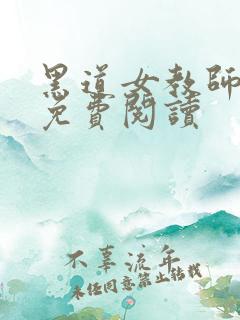 黑道女教師
免費閱讀
不辜流年
未经同意禁止转载